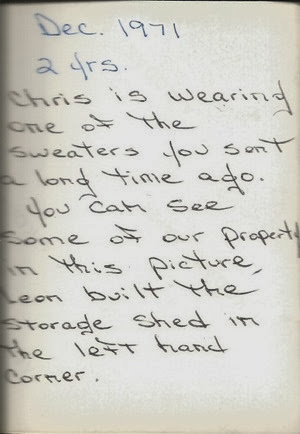 Dec. 1971
2 yrs.
Chris is wearing
one of the
sweaters you sent
a long time ago.
You can see
some of our property
in this picture,
Leon built the
storage shed in
the left hand
corner.